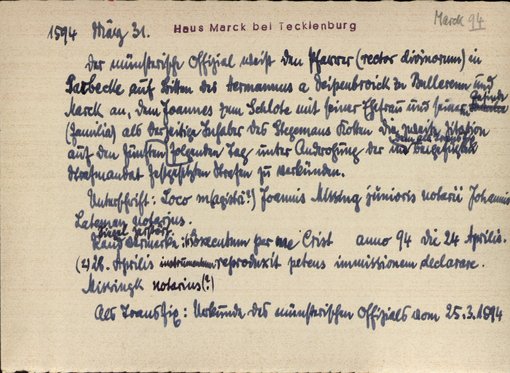 1594 März 31. Haus Marck bei Tecklenburg Marck 94
Der münsterische Offizial weist den Pfarrer (rector divinorum) in
auf Bitten des Hermannus a Deipenbroick zu Bulleren und
Marck an, den Joannes zum Schlote mit seiner Ehefrau und seiner Gesinde
(familia) als derzeitige Inhaber des Stegemans Kotten die zweite Citation
auf den fünften folgenden Tag unter Androhung der
Strafmandat festgesetzten Strafen zu verkünden.
Unterschrift: Loco magistri?) Joannis Missing junioris notarii Johannis
notarius.
Executum per me Crist anno 94 die 24 Aprilis.
(2) 28. Aprilis instrumentum reproduxit petens immissionem declarare.
Missingk notarius(?)
Als Transfix: Urkunde des münsterischen Offizials vom 25.3.1594